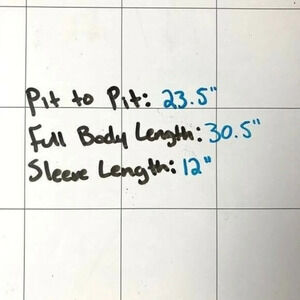 Pit to Pit: 23.5"
Full Body Length: 30.5"
Sleeve Length: 12"